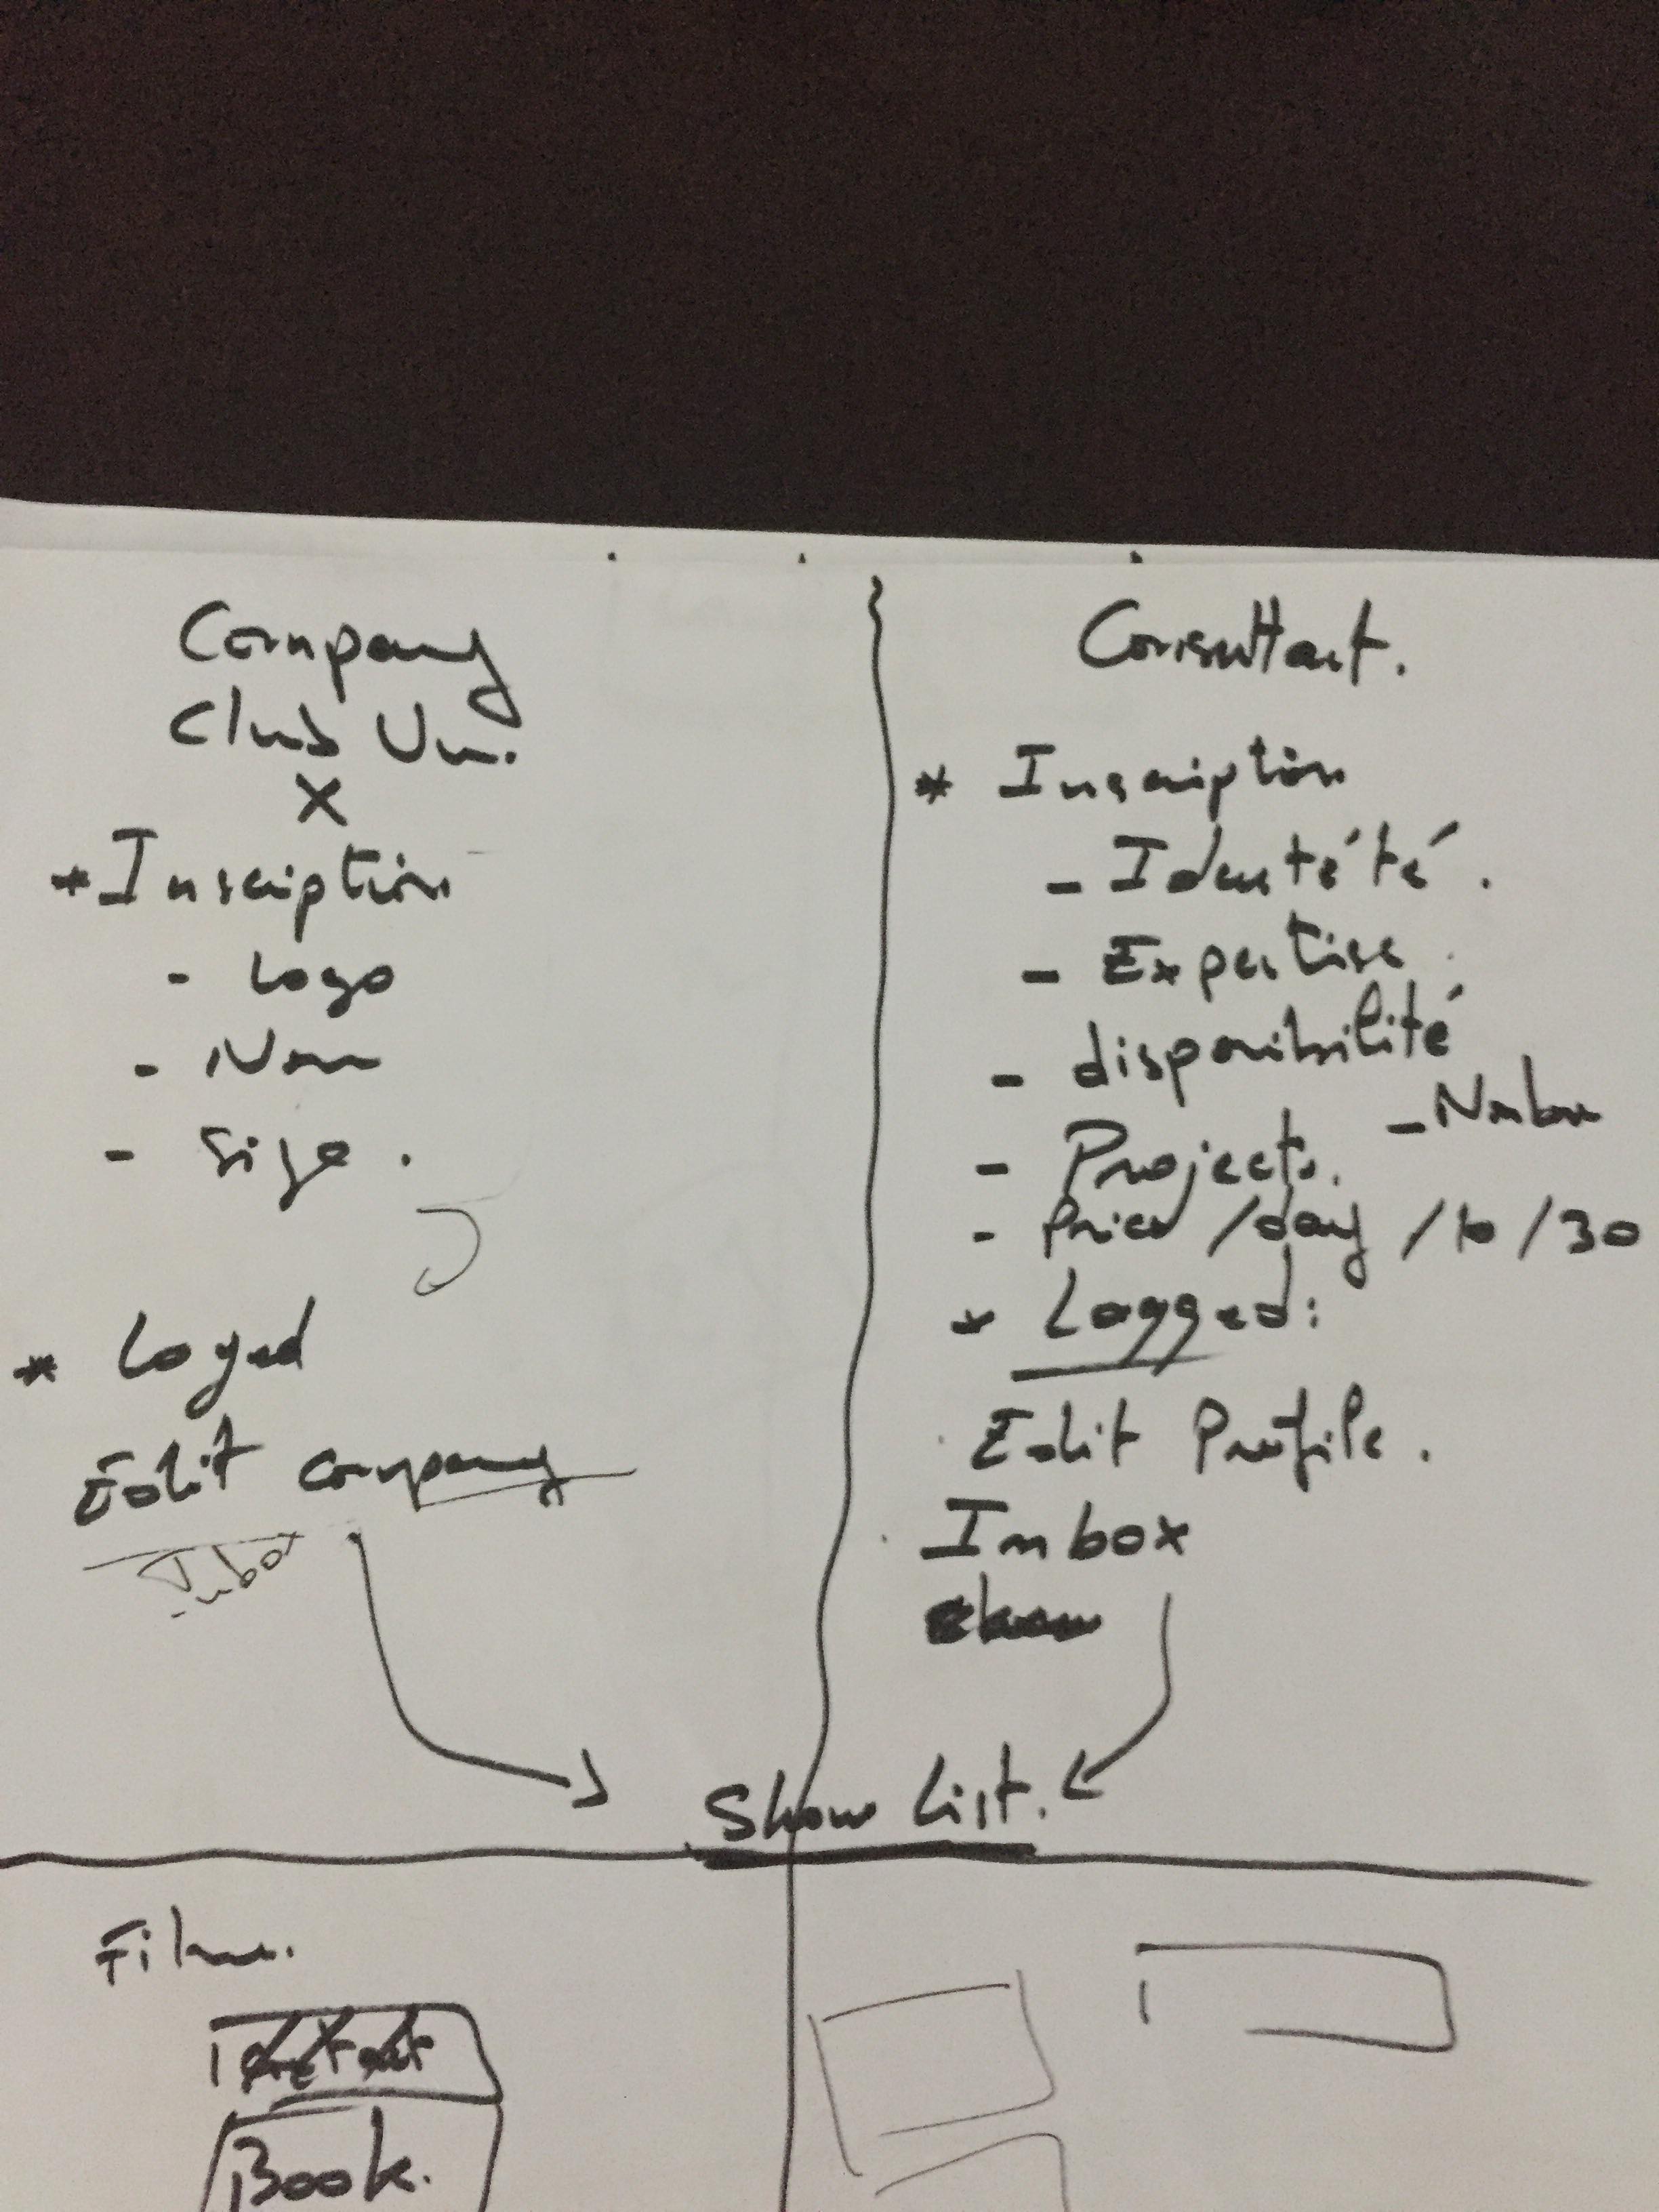 Company
Club Un.
X
* Inscription
- Logo
- Nom
- Size.
* Loged
Edit company
Inbox
Consultant.
* Inscription
- Identété.
- Expertise.
- disponibilité
- Projects. - Number
- Price /day /10 /30
* Logged:
Edit Profile.
Inbox
Show List.
Book.